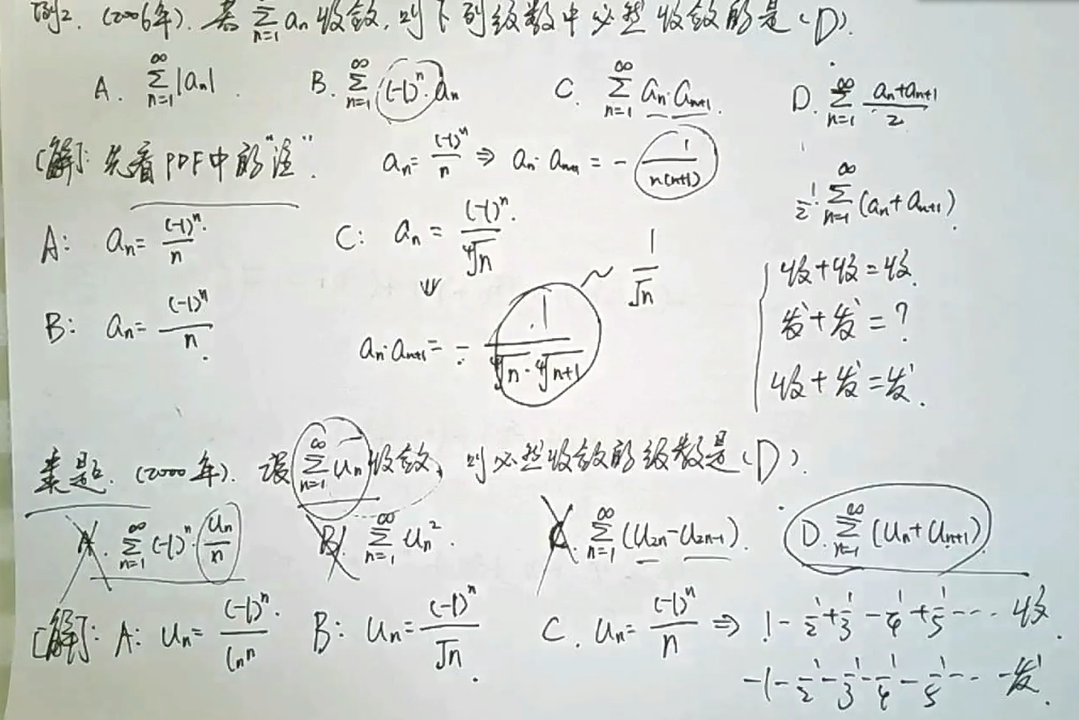 例2. (2006年). 若 $\sum_{n=1}^{\infty} a_n$ 收敛, 则下列级数中必然收敛的是 (D).
A. $\sum_{n=1}^{\infty} |a_n|$ B. $\sum_{n=1}^{\infty} (-1)^n \cdot a_n$ C. $\sum_{n=1}^{\infty} a_n \cdot a_{n+1}$ D. $\sum_{n=1}^{\infty} \frac{a_n + a_{n+1}}{2}$
[解]: 先看PDF中的"注". $a_n = \frac{(-1)^n}{n} \Rightarrow a_n \cdot a_{n+1} = -\frac{1}{n(n+1)}$
$\frac{1}{2} \cdot \sum_{n=1}^{\infty} (a_n + a_{n+1})$
A: $a_n = \frac{(-1)^n}{n}$. C: $a_n = \frac{(-1)^n}{\sqrt[4]{n}}$
⇓
收+收=收.
发+发=?
收+发=发.
B: $a_n = \frac{(-1)^n}{n}$.
$a_n \cdot a_{n+1} = -\frac{1}{\sqrt[4]{n} \cdot \sqrt[4]{n+1}} \sim \frac{1}{\sqrt{n}}$
类题. (2000年). 设 $\sum_{n=1}^{\infty} u_n$ 收敛, 则必然收敛的级数是 (D).
A. $\sum_{n=1}^{\infty} (-1)^n \cdot \frac{u_n}{n}$ B. $\sum_{n=1}^{\infty} u_n^2$. C. $\sum_{n=1}^{\infty} (u_{2n} - u_{2n-1})$. D. $\sum_{n=1}^{\infty} (u_n + u_{n+1})$
[解]: A: $u_n = \frac{(-1)^n}{\ln n}$ B: $u_n = \frac{(-1)^n}{\sqrt{n}}$. C. $u_n = \frac{(-1)^n}{n} \Rightarrow 1 - \frac{1}{2} + \frac{1}{3} - \frac{1}{4} + \frac{1}{5} \cdots$ 收.
$-1 - \frac{1}{2} - \frac{1}{3} - \frac{1}{4} - \frac{1}{5} - \cdots$ 发.